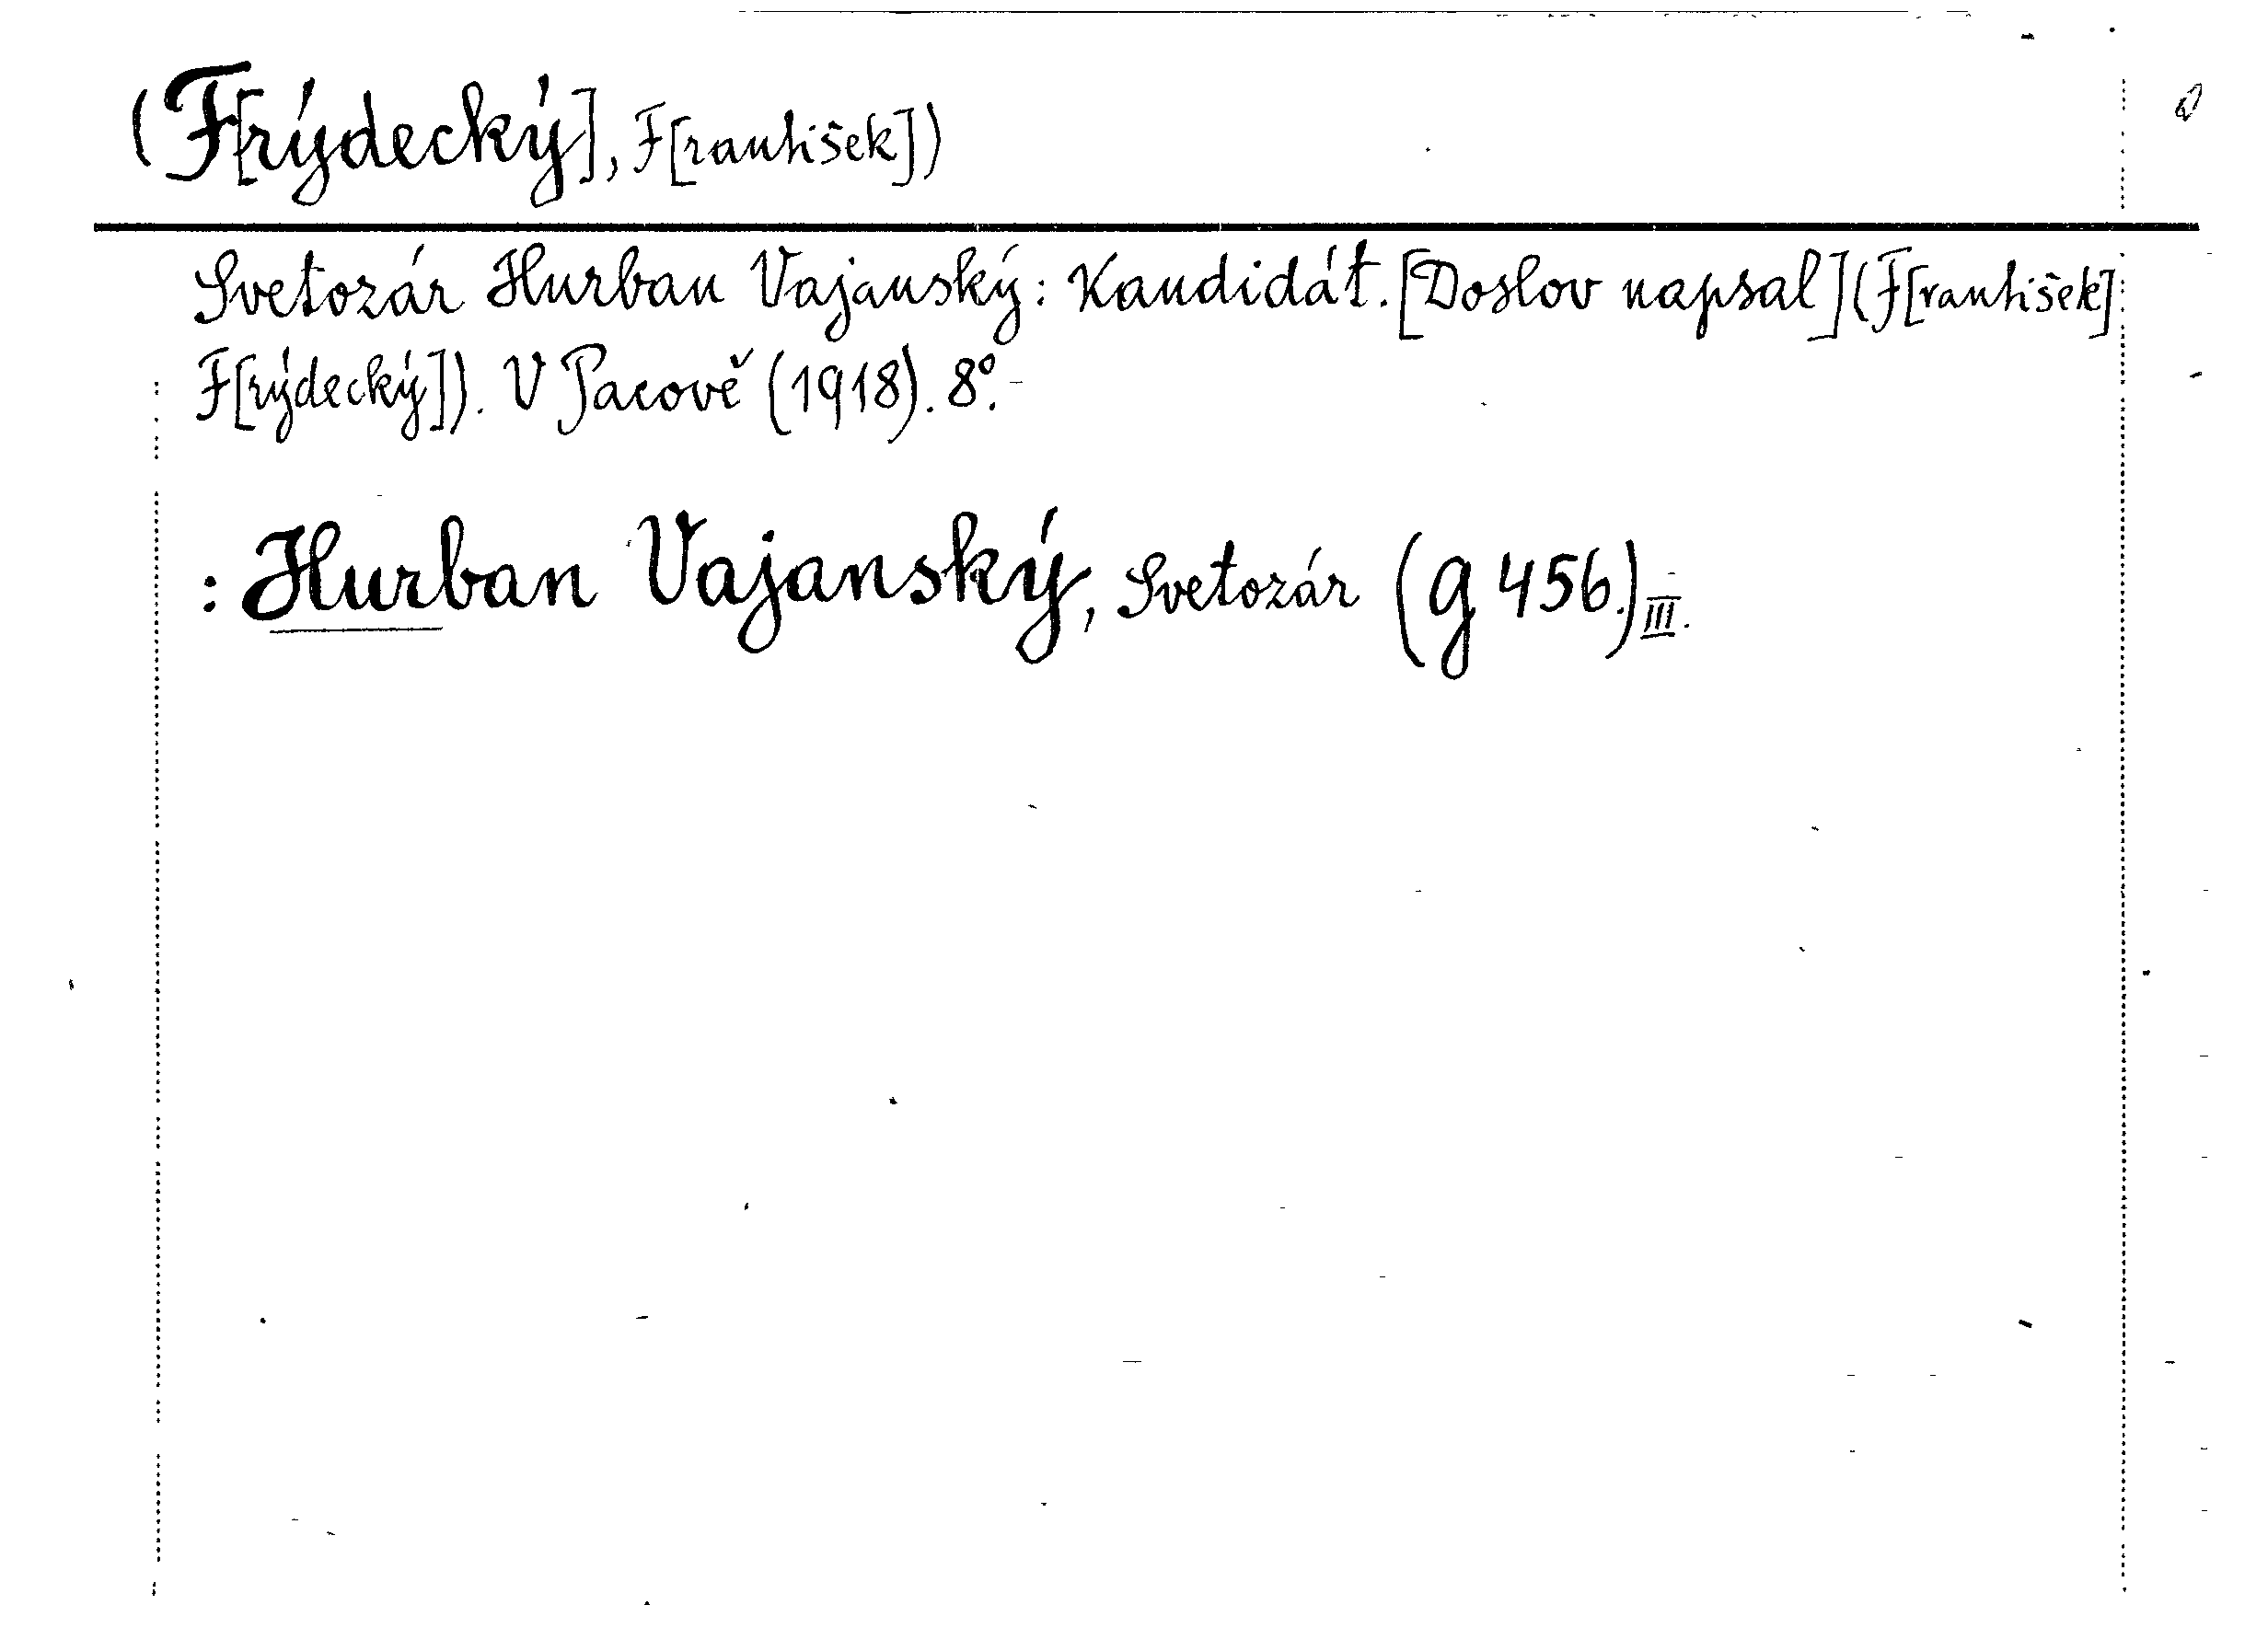 (F[rýdecký], F[rantišek])
Svetozár Hurban Vajanský: Kandidát. [Doslov napsal] (F[rantišek]
F[rýdecký]). V Pacově (1918). 8°.
: Hurban Vajanský, Svetozár (g 456.) III.